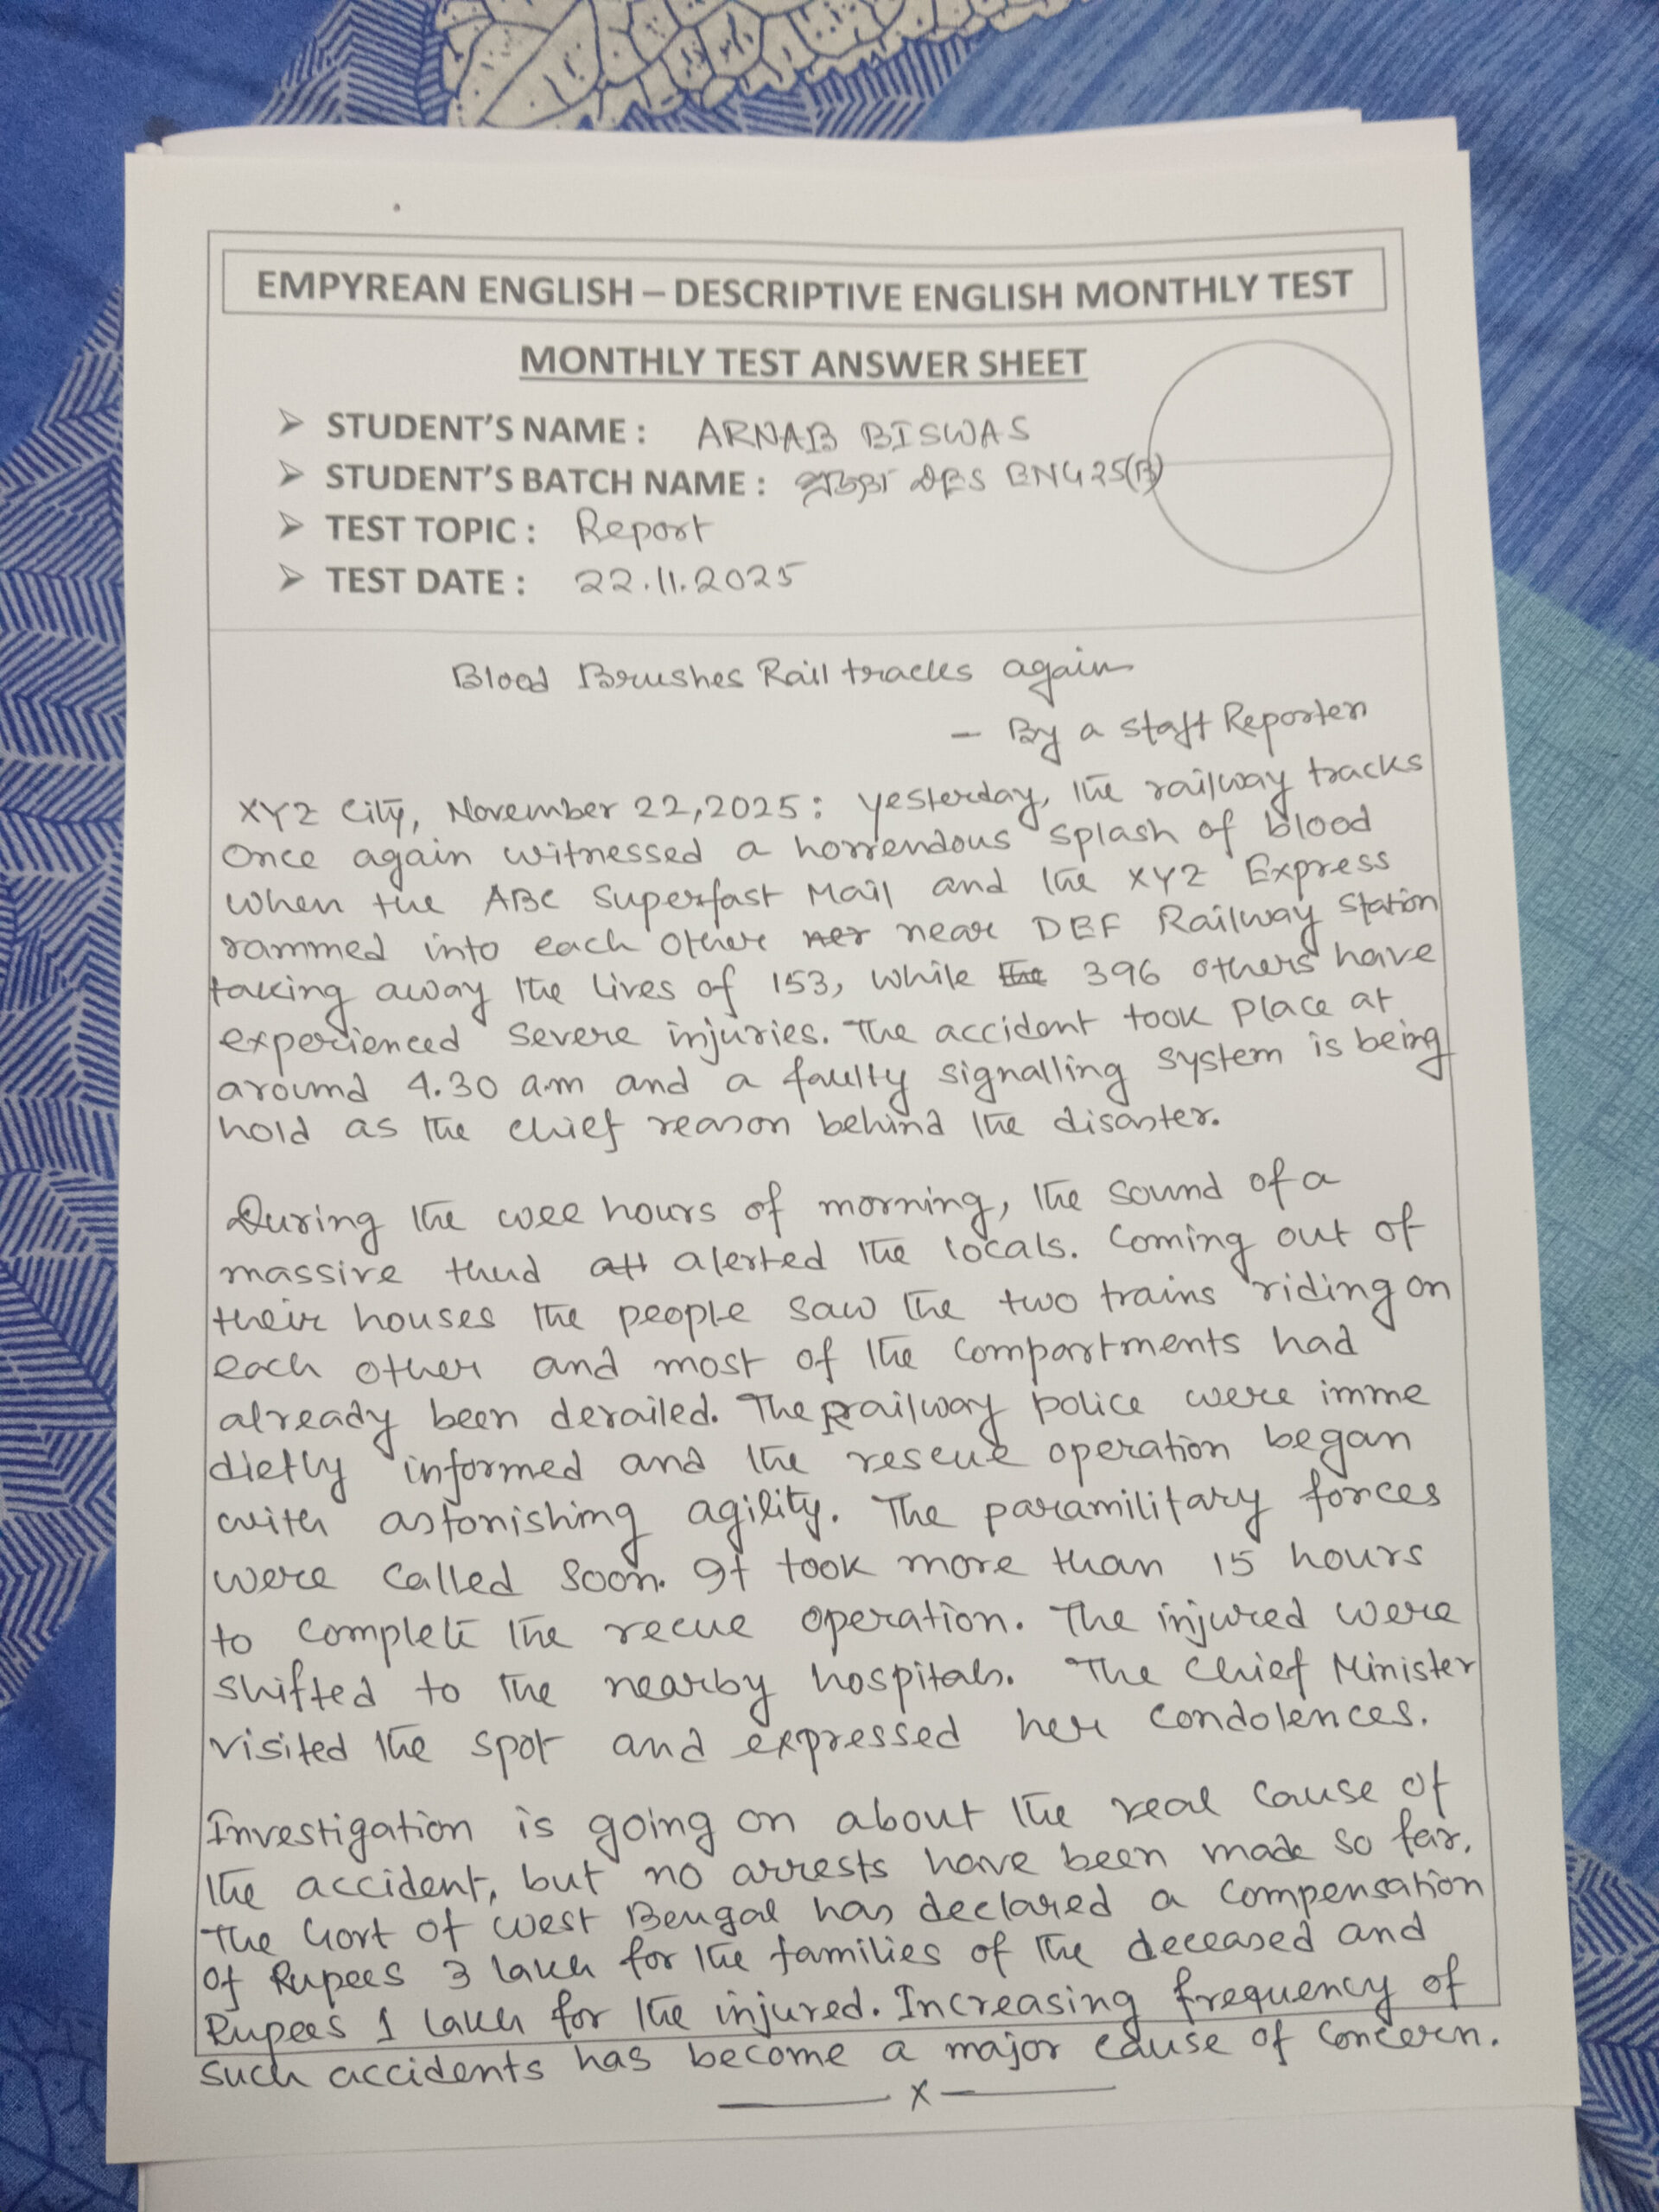 EMPYREAN ENGLISH – DESCRIPTIVE ENGLISH MONTHLY TEST
MONTHLY TEST ANSWER SHEET
➢ STUDENT'S NAME : ARNAB BISWAS
➢ STUDENT'S BATCH NAME : DES ENG25(B)
➢ TEST TOPIC : Report
➢ TEST DATE : 22.11.2025
Blood Brushes Rail tracks again
– By a staff Reporter
XYZ City, November 22, 2025: yesterday, the railway tracks
once again witnessed a horrendous splash of blood
when the ABC Superfast Mail and the XYZ Express
rammed into each other near DEF Railway Station
taking away the lives of 153, while 396 others have
experienced severe injuries. The accident took place at
around 4.30 a.m and a faulty signalling system is being
hold as the chief reason behind the disaster.
During the wee hours of morning, the sound of a
massive thud alerted the locals. Coming out of
their houses the people saw the two trains riding on
each other and most of the compartments had
already been derailed. The Railway police were imme
dietly informed and the rescue operation began
with astonishing agility. The paramilitary forces
were called soon. It took more than 15 hours
to complete the recue operation. The injured were
shifted to the nearby hospitals. The Chief Minister
visited the spot and expressed her condolences.
Investigation is going on about the real cause of
the accident, but no arrests have been made so far.
The Govt of West Bengal has declared a compensation
of Rupees 3 lakh for the families of the deceased and
Rupees 1 lakh for the injured. Increasing frequency of
such accidents has become a major cause of concern.
x